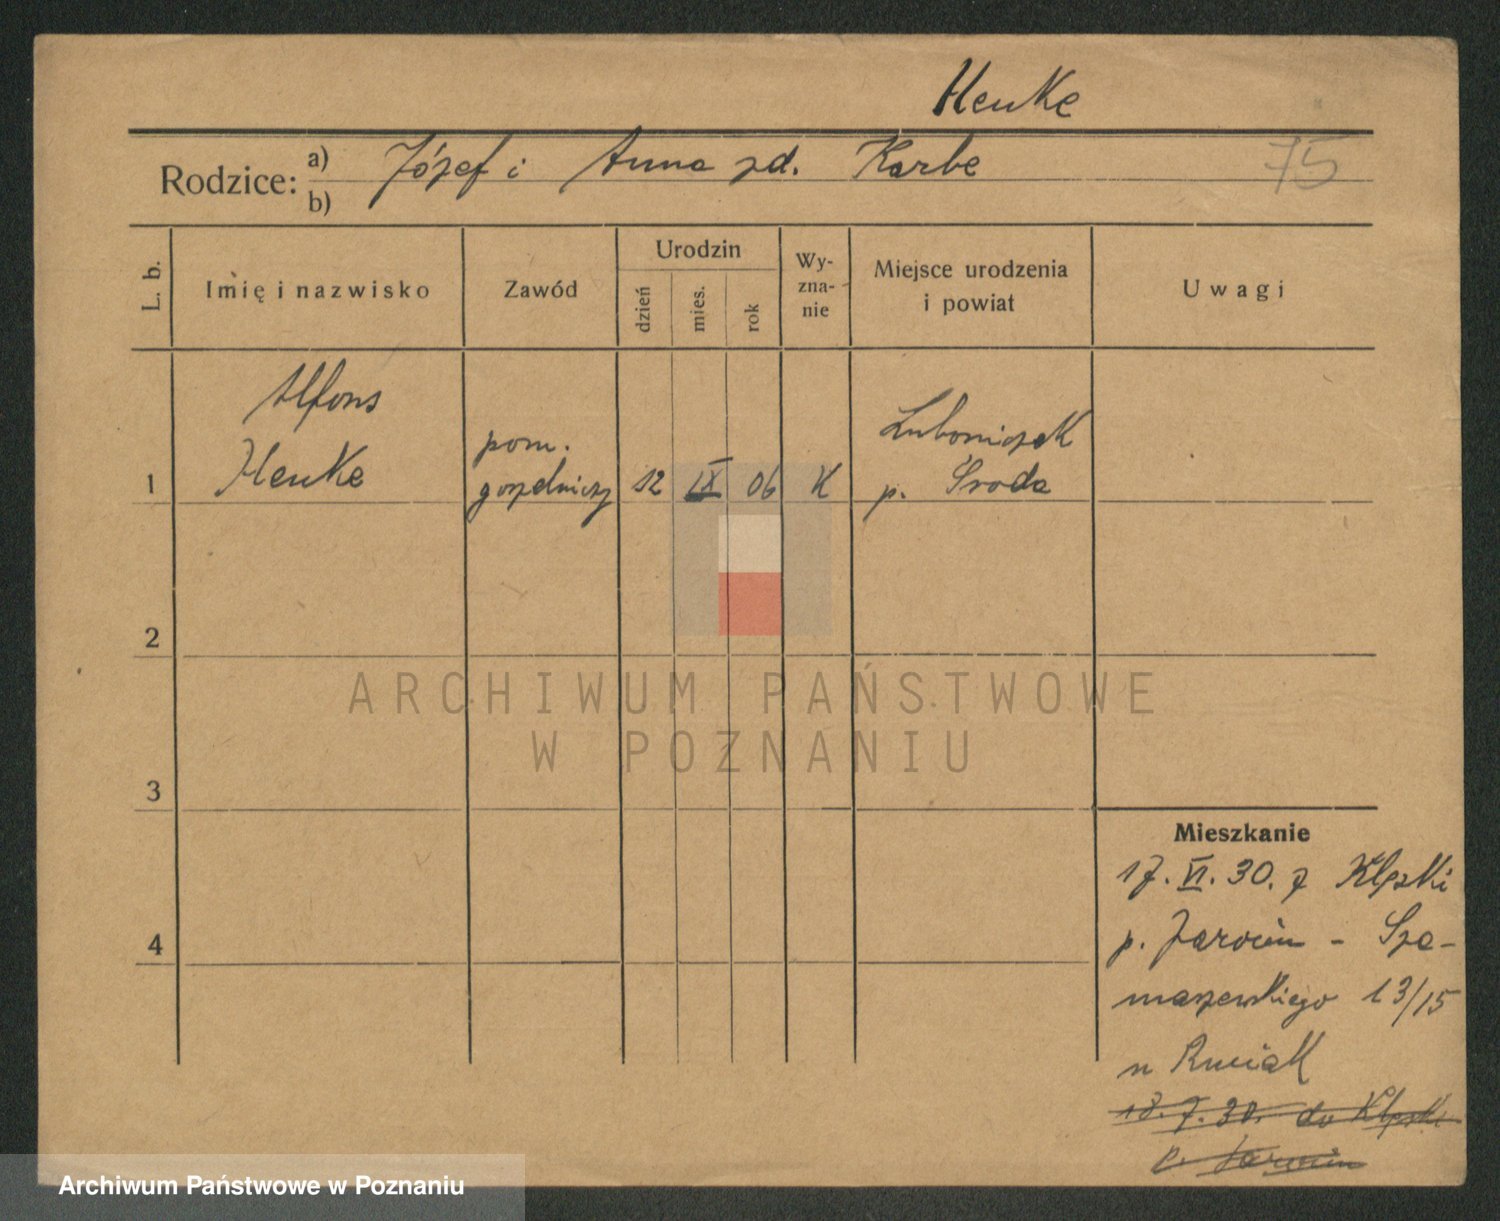 Henke
Rodzice: a) Józef i Anna zd. Karbe
b)
75
L. b.
Imię i nazwisko
Zawód
Urodzin
dzień
mies.
rok
Wy-
zna-
nie
Miejsce urodzenia
i powiat
Uwagi
Alfons
Henke
pom.
gorzelniczy
1
12 IX 06 K
Luboniczek
p. Środa
2
3
4
Mieszkanie
17. VI. 30. z Klęki
p. Jarocin - Sza-
maszewskiego 13/15
u
18. 7. 30. do
p. Jarocin
ARCHIWUM PAŃSTWOWE
W POZNANIU
Archiwum Państwowe w Poznaniu